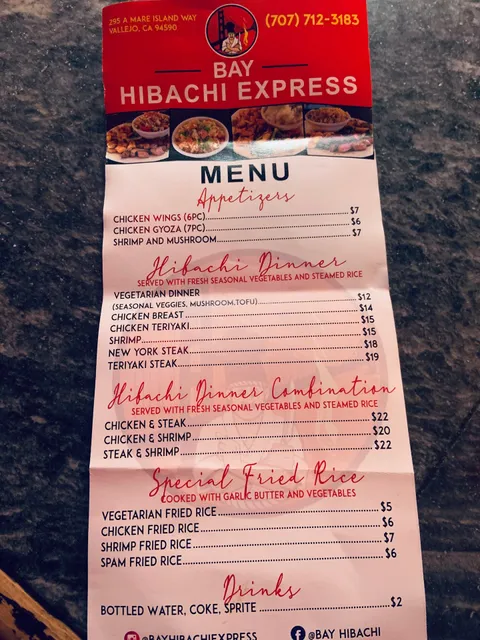 295 A MARE ISLAND WAY
VALLEJO, CA 94590
(707) 712-3183
BAY
HIBACHI EXPRESS
MENU
Appetizers
CHICKEN WINGS (6PC) $7
CHICKEN GYOZA (7PC) $6
SHRIMP AND MUSHROOM $7
Hibachi Dinner
SERVED WITH FRESH SEASONAL VEGETABLES AND STEAMED RICE
VEGETARIAN DINNER
(SEASONAL VEGGIES, MUSHROOM,TOFU) $12
CHICKEN BREAST $14
CHICKEN TERIYAKI $15
SHRIMP $15
NEW YORK STEAK $18
TERIYAKI STEAK $19
Hibachi Dinner Combination
SERVED WITH FRESH SEASONAL VEGETABLES AND STEAMED RICE
CHICKEN & STEAK $22
CHICKEN & SHRIMP $20
STEAK & SHRIMP $22
Special Fried Rice
COOKED WITH GARLIC BUTTER AND VEGETABLES
VEGETARIAN FRIED RICE $5
CHICKEN FRIED RICE $6
SHRIMP FRIED RICE $7
SPAM FRIED RICE $6
Drinks
BOTTLED WATER, COKE, SPRITE $2
@BAYHIBACHIEXPRESS
@BAY HIBACHI